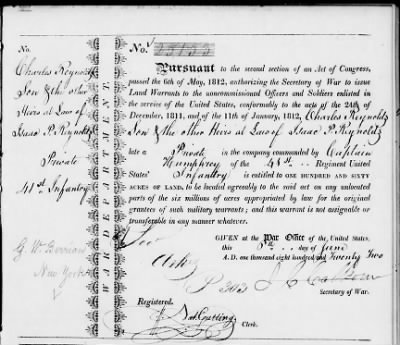 No.
Charles Reynolds
Son & the other
Heirs at Law of
Isaac P. Reynolds
Private
41st Infantry
New York
WAR DEPARTMENT.
No.
Pursuant to the second section of an Act of Congress,
passed the 6th of May, 1812, authorizing the Secretary of War to issue
Land Warrants to the noncommissioned Officers and Soldiers enlisted in
the service of the United States, conformably to the acts of the 24th of
December, 1811, and of the 11th of January, 1812, Charles Reynolds
Son & the other Heirs at Law of Isaac P. Reynolds
late a Private in the company commanded by Captain
Humphrey of the 41st Regiment United
States' Infantry is entitled to ONE HUNDRED AND SIXTY
ACRES OF LAND, to be located agreeably to the said act on any unlocated
parts of the six millions of acres appropriated by law for the original
grantees of such military warrants; and this warrant is not assignable or
transferable in any manner whatever.
GIVEN at the War Office of the United States,
this day of June
A.D. one thousand eight hundred and Twenty Two
J C Calhoun
Secretary of War.
Registered.
Clerk.